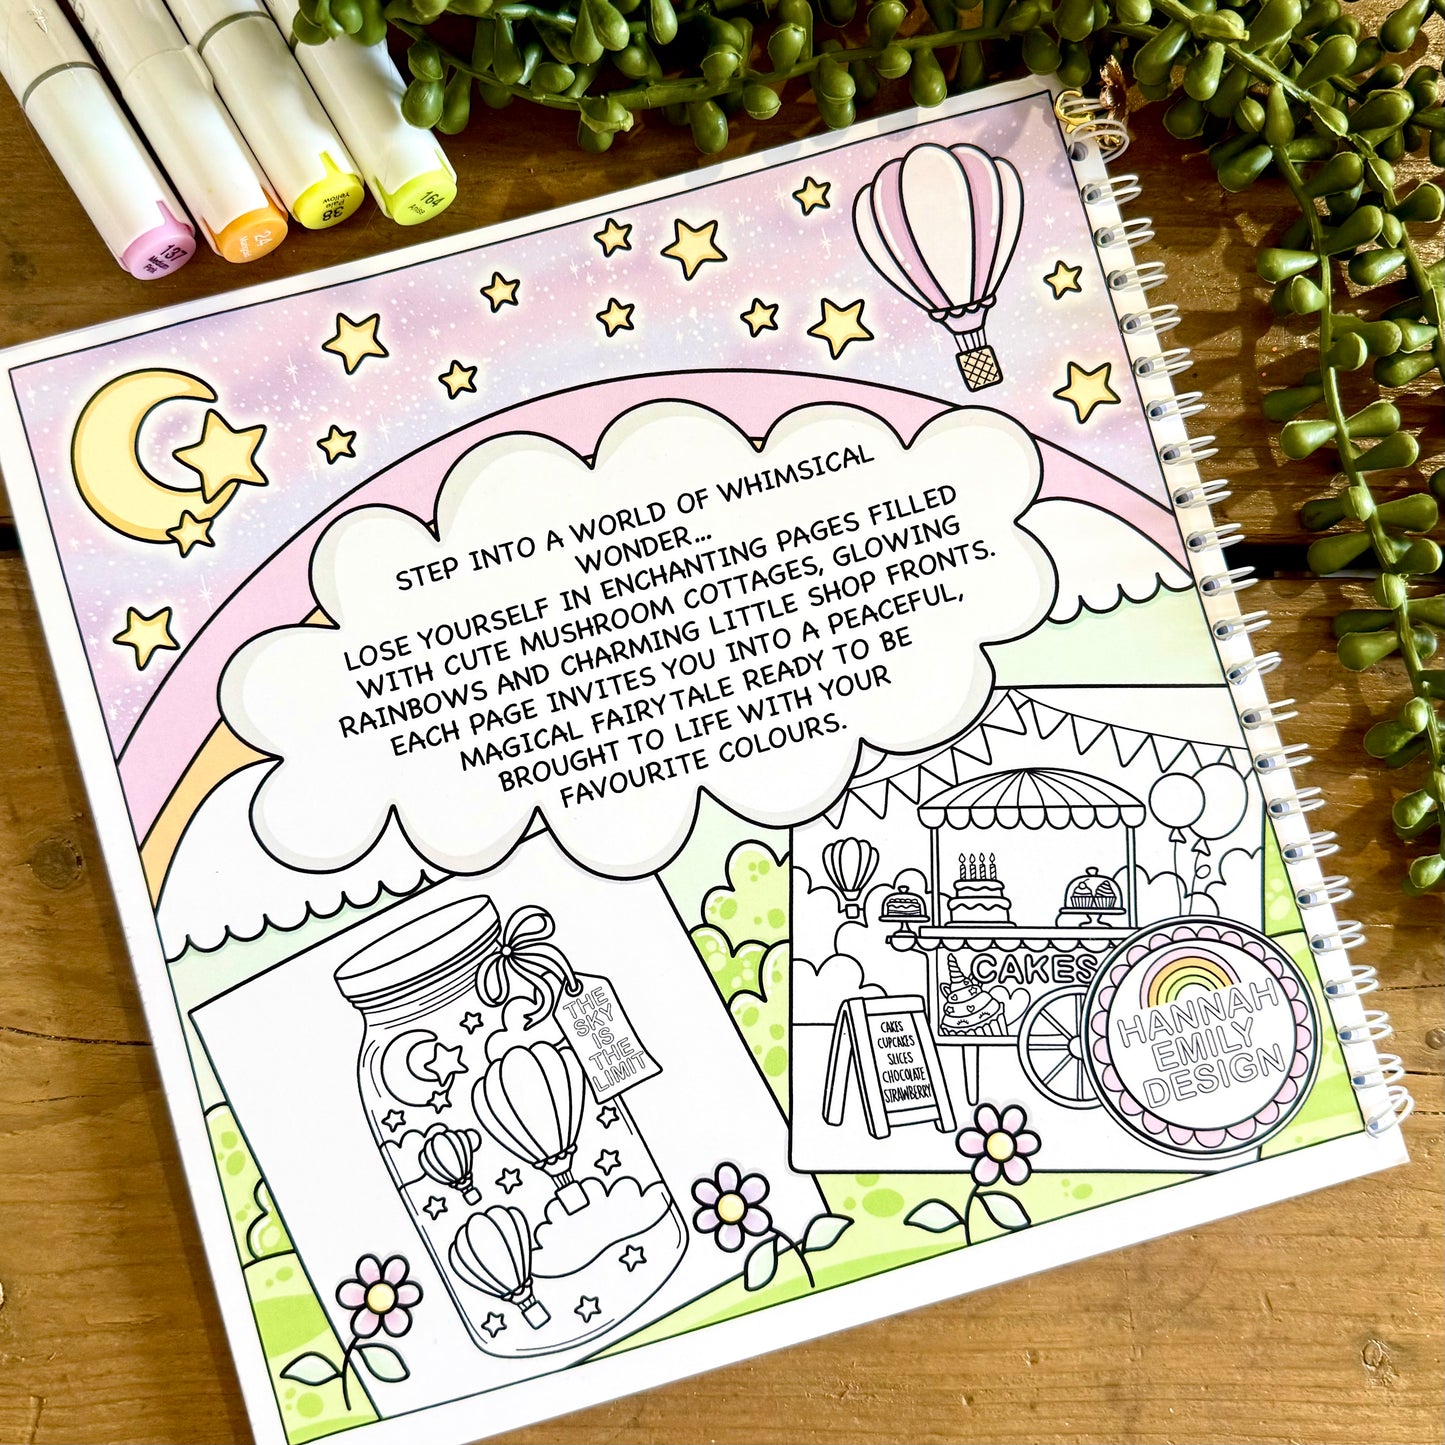 137
Medium
Pink
24
38
Pale
Yellow
164
STEP INTO A WORLD OF WHIMSICAL
WONDER...
LOSE YOURSELF IN ENCHANTING PAGES FILLED
WITH CUTE MUSHROOM COTTAGES, GLOWING
RAINBOWS AND CHARMING LITTLE SHOP FRONTS.
EACH PAGE INVITES YOU INTO A PEACEFUL,
MAGICAL FAIRYTALE READY TO BE
BROUGHT TO LIFE WITH YOUR
FAVOURITE COLOURS.
THE
SKY
IS
THE
LIMIT
CAKES
CAKES
CUPCAKES
SLICES
CHOCOLATE
STRAWBERRY
HANNAH
EMILY
DESIGN